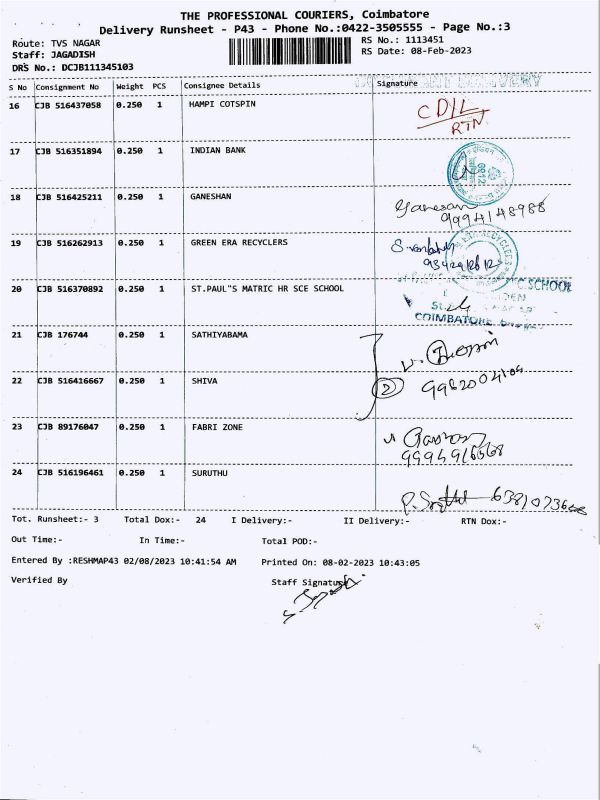 THE PROFESSIONAL COURIERS, Coimbatore
Delivery Runsheet - P43 - Phone No.:0422-3505555 - Page No.:3
Route: TVS NAGAR RS No.: 1113451
Staff: JAGADISH RS Date: 08-Feb-2023
DRS No.: DCJB111345103
S No Consignment No Weight PCS Consignee Details Signature
16 CJB 516437058 0.250 1 HAMPI COTSPIN CD/L
RTN
17 CJB 516351894 0.250 1 INDIAN BANK
18 CJB 516425211 0.250 1 GANESHAN Ganesan
9994148988
19 CJB 516262913 0.250 1 GREEN ERA RECYCLERS
20 CJB 516370892 0.250 1 ST.PAUL"S MATRIC HR SCE SCHOOL SCHOOL
COIMBATORE
21 CJB 176744 0.250 1 SATHIYABAMA
22 CJB 516416667 0.250 1 SHIVA 2
23 CJB 89176047 0.250 1 FABRI ZONE
24 CJB 516196461 0.250 1 SURUTHU
Tot. Runsheet:- 3 Total Dox:- 24 I Delivery:- II Delivery:- RTN Dox:-
Out Time:- In Time:- Total POD:-
Entered By :RESHMAP43 02/08/2023 10:41:54 AM Printed On: 08-02-2023 10:43:05
Verified By Staff Signature